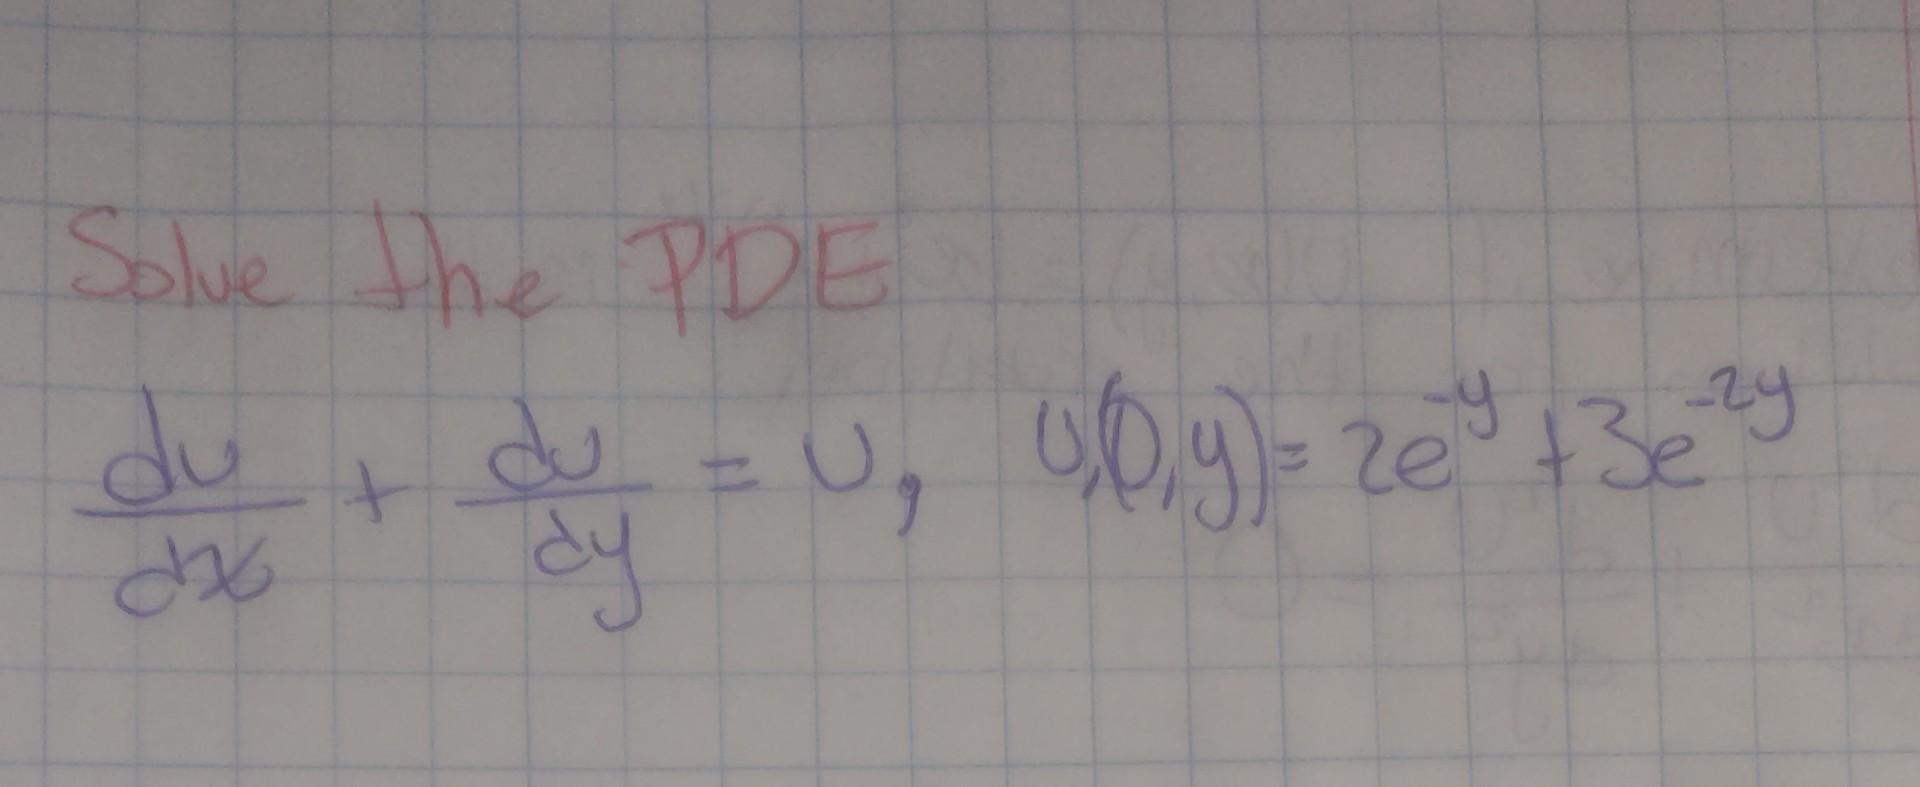 Solve the PDE
du/dx + du/dy = u, u(0,y) = 2e^-y + 3e^-2y